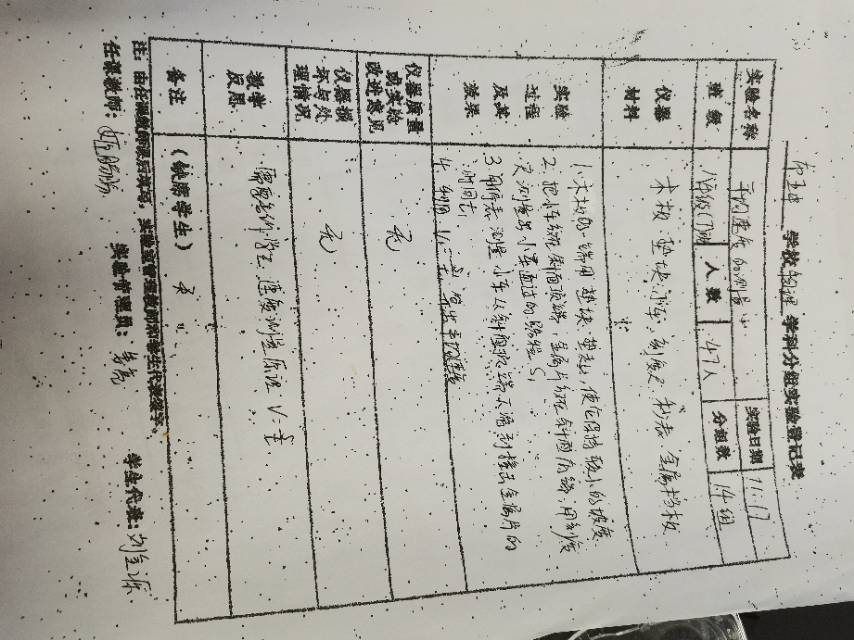 学校物理学科分组实验登记表
实验名称 平均速度的测量 实验日期 11.17
班级 八年级(1)班 人数 47人 分组数 14组
仪器材料 木板、垫块、小车、刻度尺、秒表、金属挡板
实验过程及其效果
1.木板的一端用垫块垫起,使它保持较小的坡度
2.把小车放斜面顶端,金属片放在斜面底端,用刻度
尺测量出小车通过的路程S,
3.用秒表测量小车从斜面顶端下滑到撞击金属片的
时间t,
4.
仪器质量或实验改进意见 无
仪器损坏与处理情况 无
教学反思 需要告诉学生,速度测量原理V=s/t
备注 (缺席学生) 无
注:由任课教师课后填写,实验室管理教师和学生代表签字。
任课教师: 实验管理员: 学生代表: